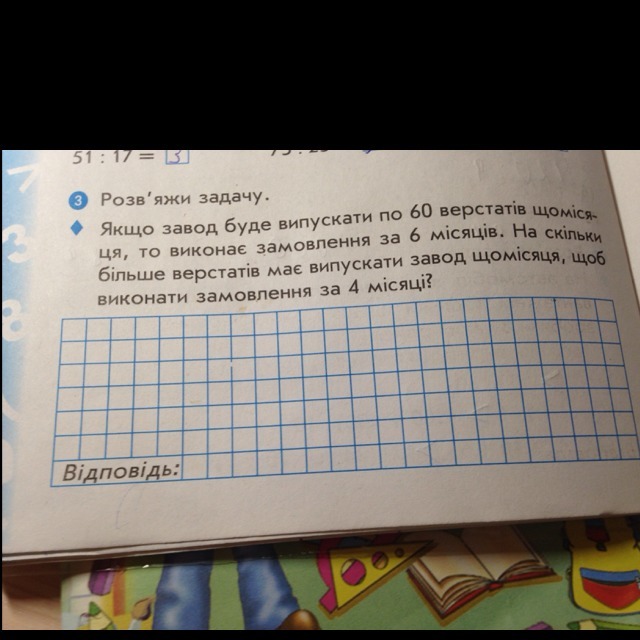 51 : 17 = 3
3 Розв'яжи задачу.
Якщо завод буде випускати по 60 верстатів щоміся-
ця, то виконає замовлення за 6 місяців. На скільки
більше верстатів має випускати завод щомісяця, щоб
виконати замовлення за 4 місяці?
Відповідь: